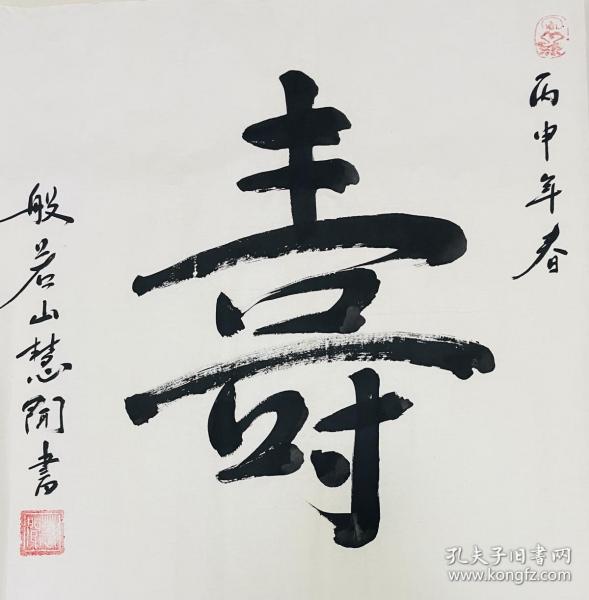 丙申年春
壽
般若山慧闻書
孔夫子旧书网
www.kongfz.com